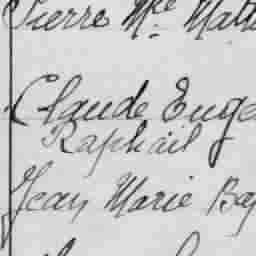 Pierre Mce Matt
Claude Euge
Raphaïl
Jean Marie Bap